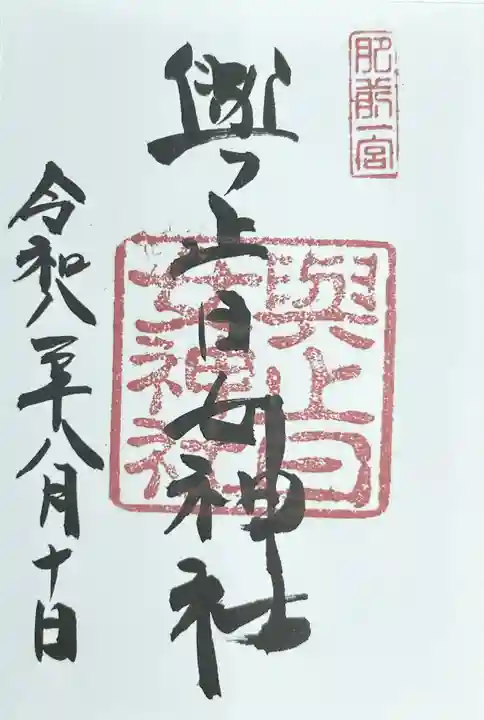 肥前一宮
與止日女神社
與止日女神社
令和八年八月十日